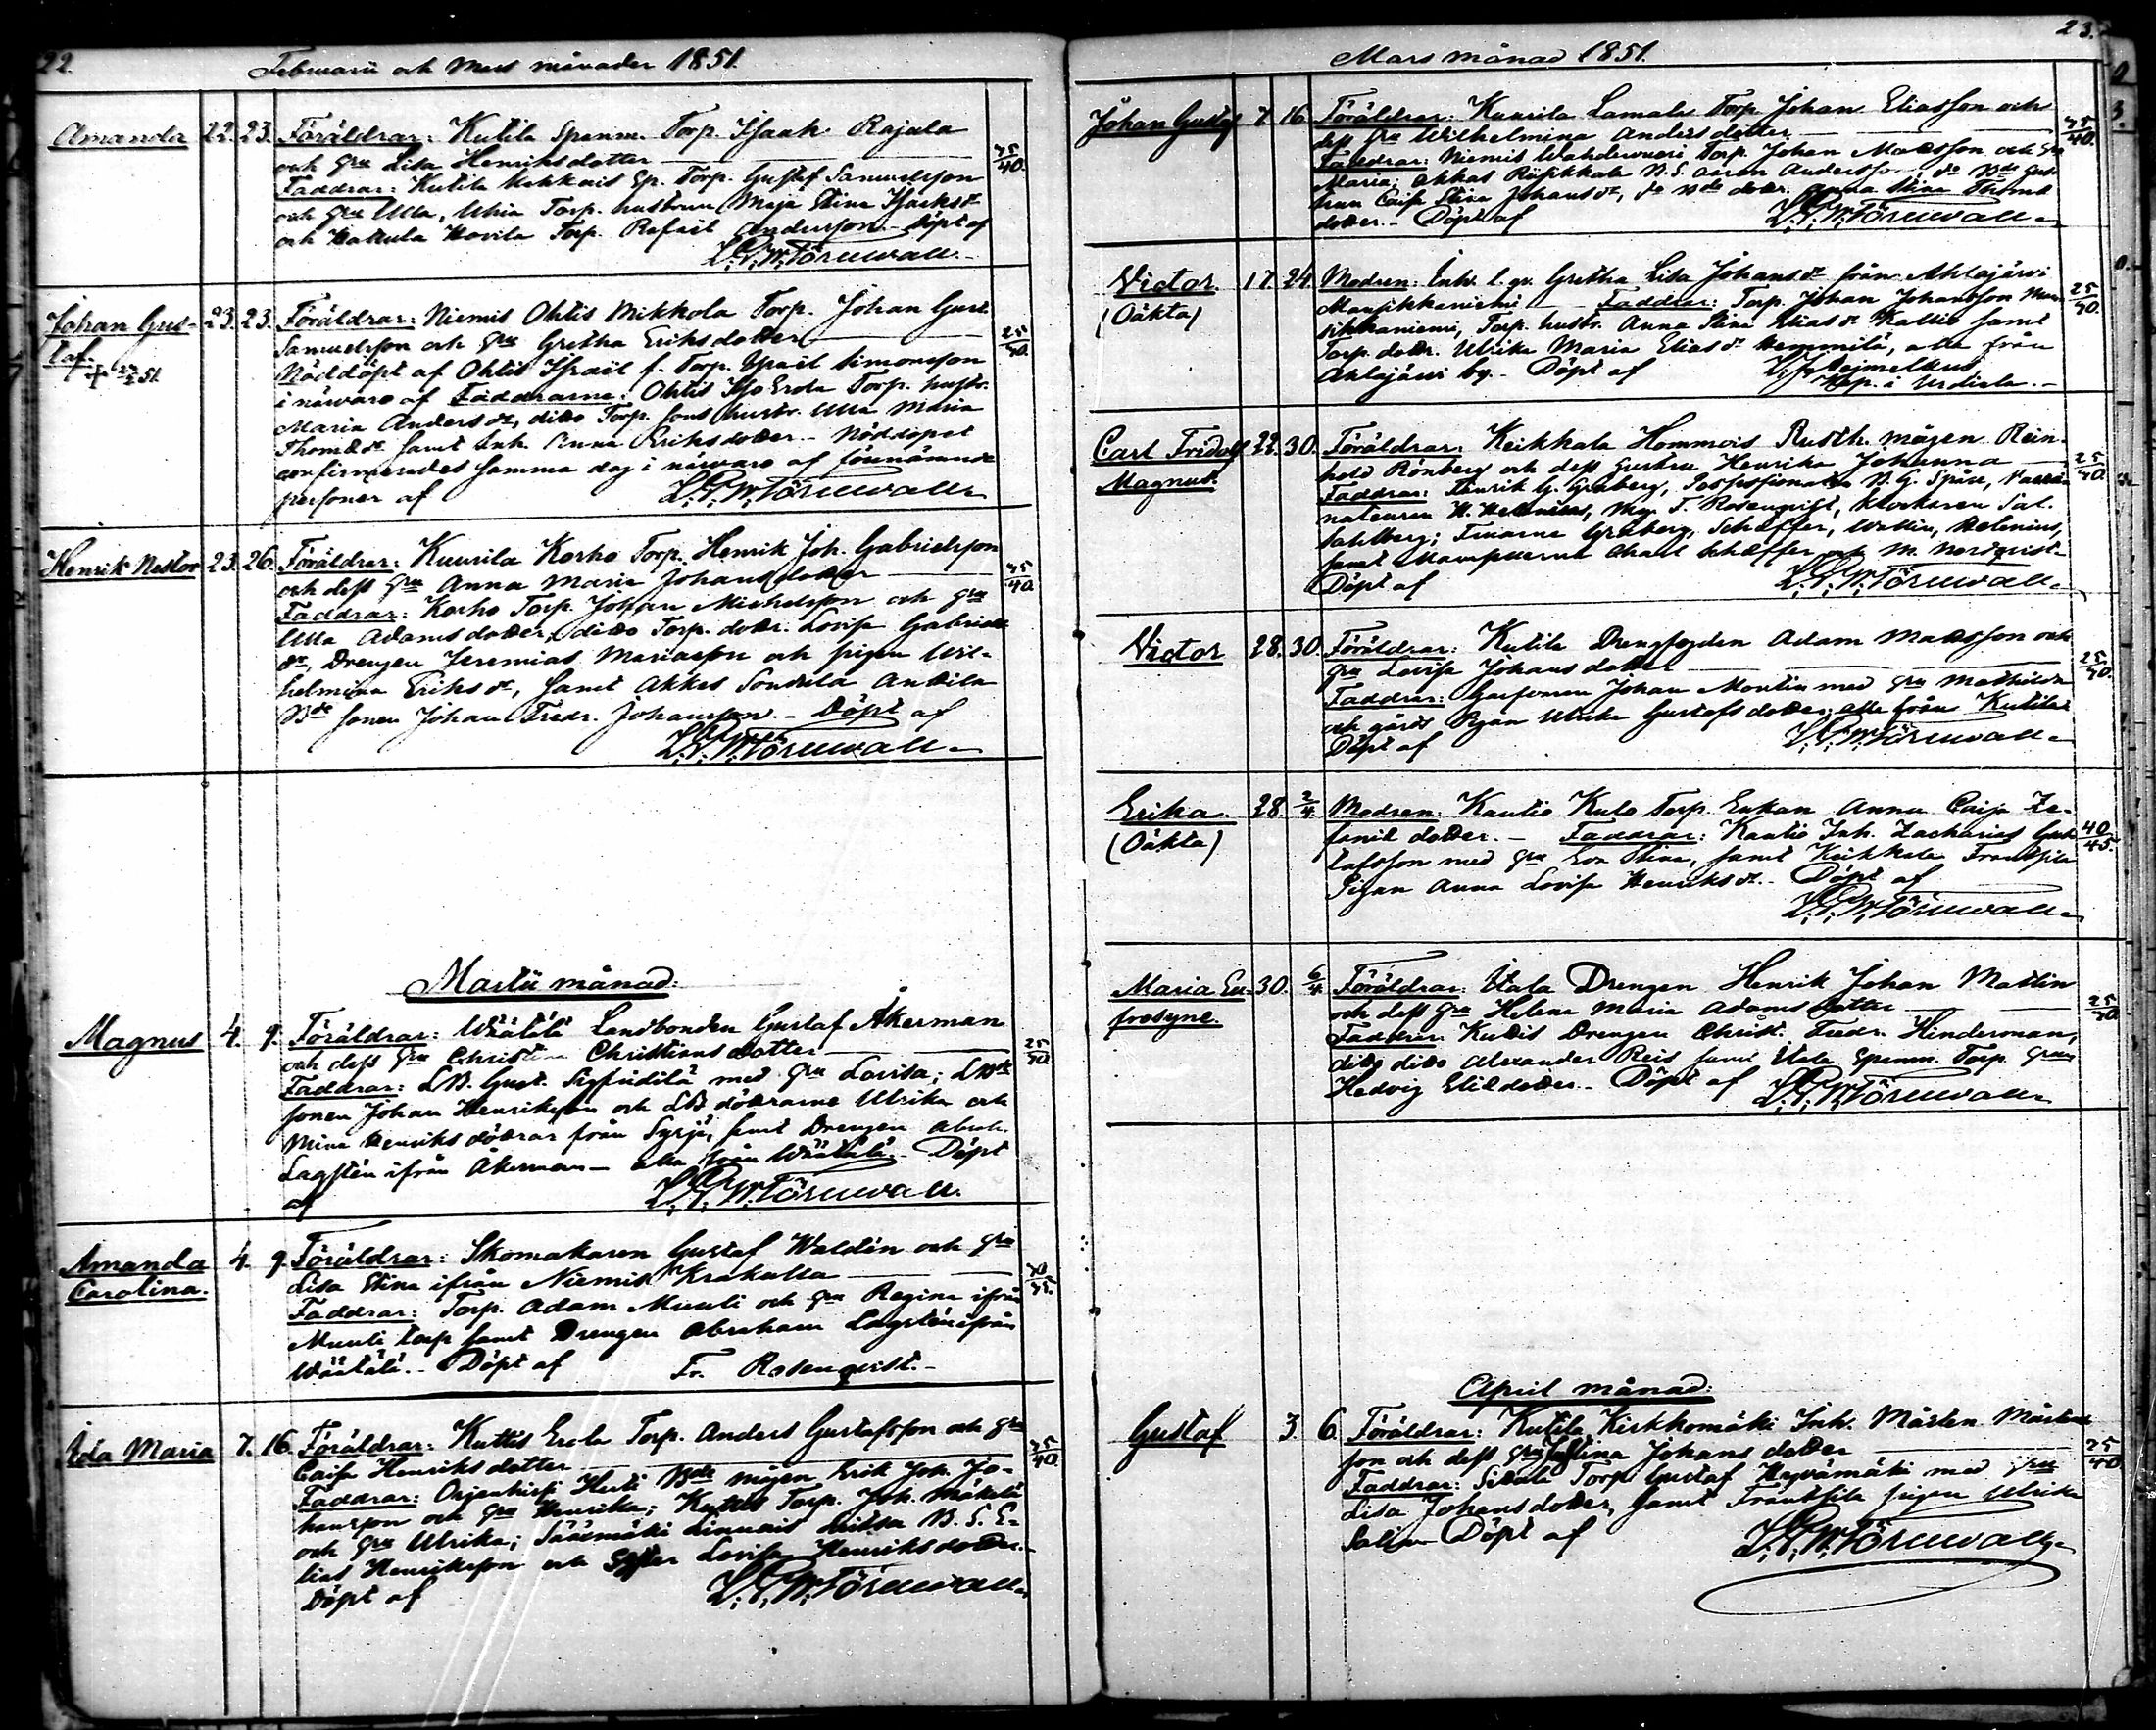 22.
Februarii och Mars månader 1851.
Amanda 22. 23. Föräldrar: Kutila Spanm. Torp. Isaak Rajala
och hru Lisa Henriksdotter 35/40.
Faddrar: Kutila Sp. Torp. Gustaf Samuelsson
och hru Ulla, Torp. hustrun Maja Stina Isaksdr
och Torp. Rafael Andersson - Döpt af
L. G. W. Törnwall.
Johan Gus- 23. 23. Föräldrar: Niemis Ohtis Mikkola Torp. Johan Gust.
taf. Samuelsson och hru Gretha Eriksdotter
Nöddöpt af Ohtis Israël f. Torp. Israel Simonsson
i närvaro af Faddrarne: Ohtis Torp. hustr.
Maria Andersdr, ditto Torp. sons hustr. Ulla Maria
Thomædr samt Inh. Anna Eriksdotter - Nöddopet
confirmerades samma dag i närvaro af förenämnde
personer af L. G. W. Törnwall
Henrik Nestor 23. 26. Föräldrar: Kuurila Korho Torp. Henrik Joh. Gabrielsson
och dess hru Anna Maria Johansdotter 35/40
Faddrar: Korho Torp. Johan Michelsson och hru
Ulla Adamsdotter, ditto Torp. dottr. Lovisa Gabriels
dr, Drengen Jeremias Mariasson och pigan Wil-
helmina Eriksdr, samt Akkas Sontila
Bde sonen Johan Fredr. Johansson. - Döpt af
L. G. W. Törnwall
Martii månad.
Magnus 4. 9. Föräldrar: Wäätälä Landbonden Gustaf Åkerman
och dess hru Christina Christiansdotter 25/30
Faddrar: LB. Gust. Sigfridilä med hru Lovisa; LBde
sonen Johan Henriksson och LB döttrarne Ulrika och
Mina Henriksdöttrar från Syrjä, samt Drengen Abrah.
Lagstén ifrån Åkerman - alla från Wäätälä. - Döpt
af L. G. W. Törnwall.
Amanda 4. 9. Föräldrar: Skomakaren Gustaf Waldén och hru
Carolina. Lisa Stina ifrån Niemis Krakulla
Faddrar: Torp. Adam Muuli och hru Regina ifrån
Muuli torp samt Drengen Abraham Lagstén ifrån
Wäätälä. - Döpt af Fr. Rosenqvist. -
Ida Maria 7. 16. Föräldrar: Kuttis Erola Torp. Anders Gustafsson och hru
Caisa Henriksdotter 35/40.
Faddrar: Onjenkirj Heuti Bde mågen Erik Joh. Jo-
hansson och hru Henrika; Kuttis Torp. Joh. Mäkelä
och hru Ulrika; Sääxmäki B. S. E-
lias Henriksson och Syster Lovisa Henriksdotter. -
Döpt af L. G. W. Törnwall
23.
Mars månad 1851.
Johan Gustaf 7. 16. Föräldrar: Kuurila Lamala Torp. Johan Eliasson och
dess hru Wilhelmina Andersdotter 35/40.
Faddrar: Niemis Torp. Johan Mattsson och hru
Maria; Akkas B. S. Aaron Andersson, do Bde hus-
trun Caisa Stina Johansdr, do Bde dottr. Anna Stina Thomæ
dotter. - Döpt af L. G. W. Törnwall
Victor. 17. 24. Modren: Inh. l. qv. Gretha Lisa Johansdr från Ahlajärvi
(Oäkta) Mansikkaniemi - Faddrar: Torp. Johan Johansson Man-
sikkaniemi, Torp. hustr. Anna Stina Eliasdr Kallio samt
Torp. dottr. Ulrika Maria Eliasdr Hemmilä, alla från
Ahlajärvi by. - Döpt af L. J. Hejmelius
Kap. i Urdiala. -
Carl Fridolf 22. 30. Föräldrar: Keikkala Hommois Rusth. mågen Rein-
Magnus. hold Rönberg och dess hustru Henrika Johanna 25/30.
Faddrar: Henrik G. Gråberg, Possessionaten B. G. Spåre,
Mag. F. Rosenqvist, klockaren Sal.
Dahlberg; Fruarna Gråberg, Schæffer, Wallin, Helenius,
samt Mamsellerna Schæffer och M. Nordqvist -
Döpt af L. G. W. Törnwall
Victor 28. 30. Föräldrar: Kutila Drengfogden Adam Mattsson och
hru Lovisa Johansdotter 25/30.
Faddrar: Johan Montin med hru Mathilda
och gårds pigan Ulrika Gustafsdotter, alla från Kutila.
Döpt af L. G. W. Törnwall
Erika. 28. 2/4 Modren: Kantio Kulo Torp. Enkan Anna Caisa Ze-
(Oäkta) faniædotter. - Faddrar: Kantio Inh. Zacharias Gus- 40/45.
tafsson med hru Eva Stina, samt Keikkala Frantsila
Pigan Anna Lovisa Henriksdr. - Döpt af
L. G. W. Törnwall
Maria Eu- 30. 6/4 Föräldrar: Utala Drengen Henrik Johan Mattin
frosyne. och dess hru Helena Maria Adamsdotter 25/30
Faddrar: Kuttis Drengen Christ. Fredr. Hinderman,
ditto ditto Alexander Reis samt Utala Spanm. Torp. hrun
Hedvig dotter. - Döpt af L. G. W. Törnwall
April månad.
Gustaf 3. 6. Föräldrar: Kutila Kirkkomäki Inh. Mårten Mårtens
son och dess hru Stina Johansdotter 35/40
Faddrar: Torp. Gustaf Hyvämäki med hru
Lisa Johansdotter, samt Frantsila pigan Ulrika
Salin - Döpt af L. G. W. Törnwall